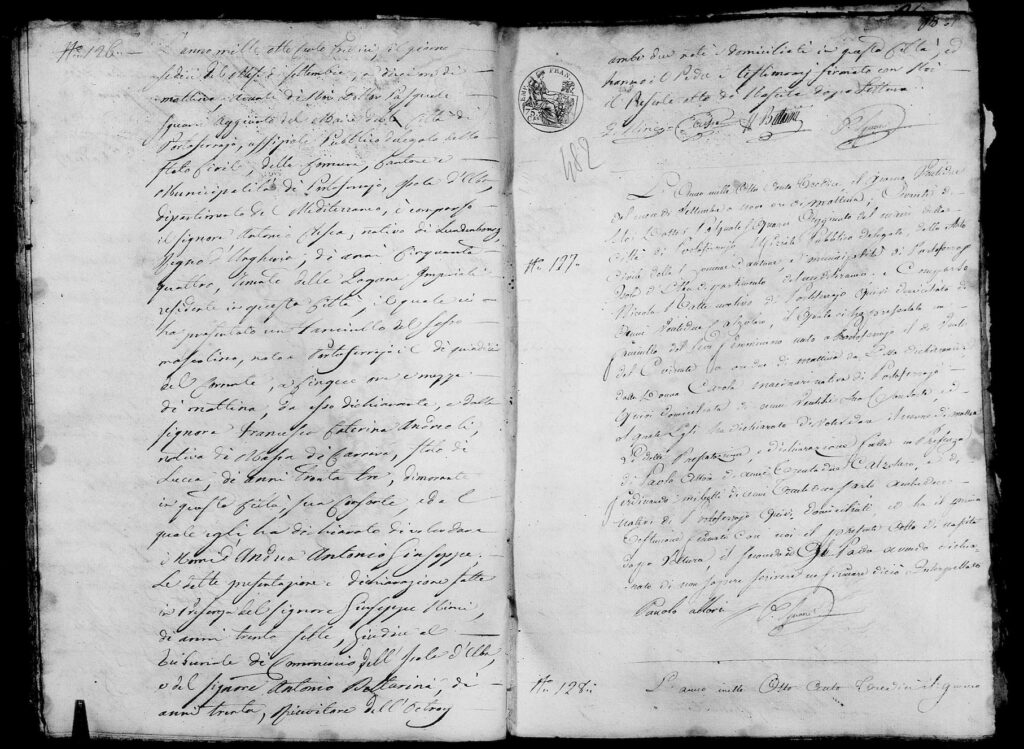 N.° 126.
L'anno mille otto cento tredici, il giorno
sedici del mese di settembre, a dieci ore di
mattina avanti di Noi Dottor Pasquale
Squarci Aggiunto del Maire della Città di
Portoferrajo, uffiziale Pubblico delegato dello
stato Civile, della Comune, Cantone e
Municipalità di Portoferrajo, Isola d'Elba,
dipartimento del Mediterraneo, è comparso
il signore Antonio Cesca, nativo di
Regno d'Ungheria, di anni Cinquanta
quattro, Tenente delle Dogane Imperiali
residente in questa Città, il quale ci
ha presentato un Fanciullo del sesso
mascolino, nato a Portoferrajo il dì quindici
del Corrente, a Cinque ore e mezza
di mattina, da esso dichiarante, e dalla
signora Francesca Caterina Andreoli,
nativa di Massa di Carrara, stato di
Lucca, di anni trenta tre, dimorante
in questa Città, sua Consorte, ed al
quale egli ha dichiarato di voler dare
i Nomi d'Andrea Antonio Giuseppe.
Le dette presentazione e dichiarazione fatte
in Presenza del signore Giuseppe Ninci,
di anni trenta sette, Giudice al
tribunale di Commercio dell'Isola d'Elba
e del signore Antonio Bettarini, di
anni trenta, Ricevitore dell'Octroy
ambi due nati e domiciliati in questa Città, ed
hanno il Padre e testimonj firmato con Noi
il Presente atto di Nascita dopo Lettura
G. Ninci Cesca A. Bettarini P. Squarci
482
N.° 127.
L'Anno mille Otto Cento Tredici, il giorno Ventidue
del mese di Settembre a nove ore di mattina, Avanti di
Noi Dottor Pasquale Squarci Aggiunto del maire della
Città di Portoferrajo Uffiziale Pubblico delegato, dello Stato
Civile della Comune Cantone, e municipalità di Portoferrajo
Isola d'Elba dipartimento del mediterraneo è Comparso
Niccola nativo di Portoferrajo Quivi domiciliato di
anni Ventidue Calzolaro, il Quale ci ha presentato un
fanciullo del Sesso Femminino nato a Portoferrajo il dì Venti
del Corrente a ore due di mattina da Esso dichiarante
e dalla Donna nativa di Portoferrajo
Quivi domiciliata di anni Ventitre Sua Consorte ed
al quale Egli ha dichiarato di Voler dare il nome di
Le dette Presentazione, e dichiarazione fatte in Presenza
di Paolo Allori d'anni Trenta due Calzolaro, e di
Ferdinando di anni Sarto ambedue
nativi di Portoferrajo Quivi domiciliati ed ha il primo
testimone firmato Con noi il presente Atto di nascita
dopo Lettura, il secondo ed il Padre avendo dichia-
rato di non sapere scrivere ne firmare di ciò Interpellati
Paolo Allori P. Squarci
N.° 128.
L'anno mille Otto Cento Tredici il giorno